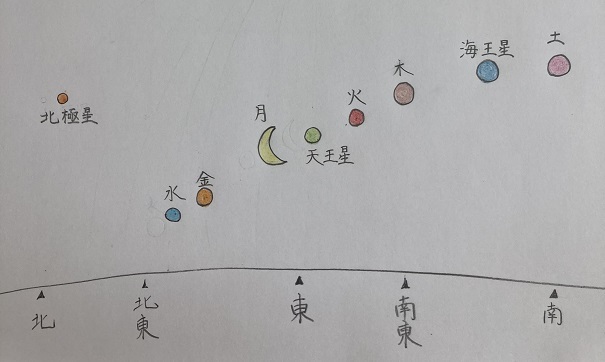 土
海王星
木
火
北極星
月
天王星
金
水
北
北東
東
南東
南